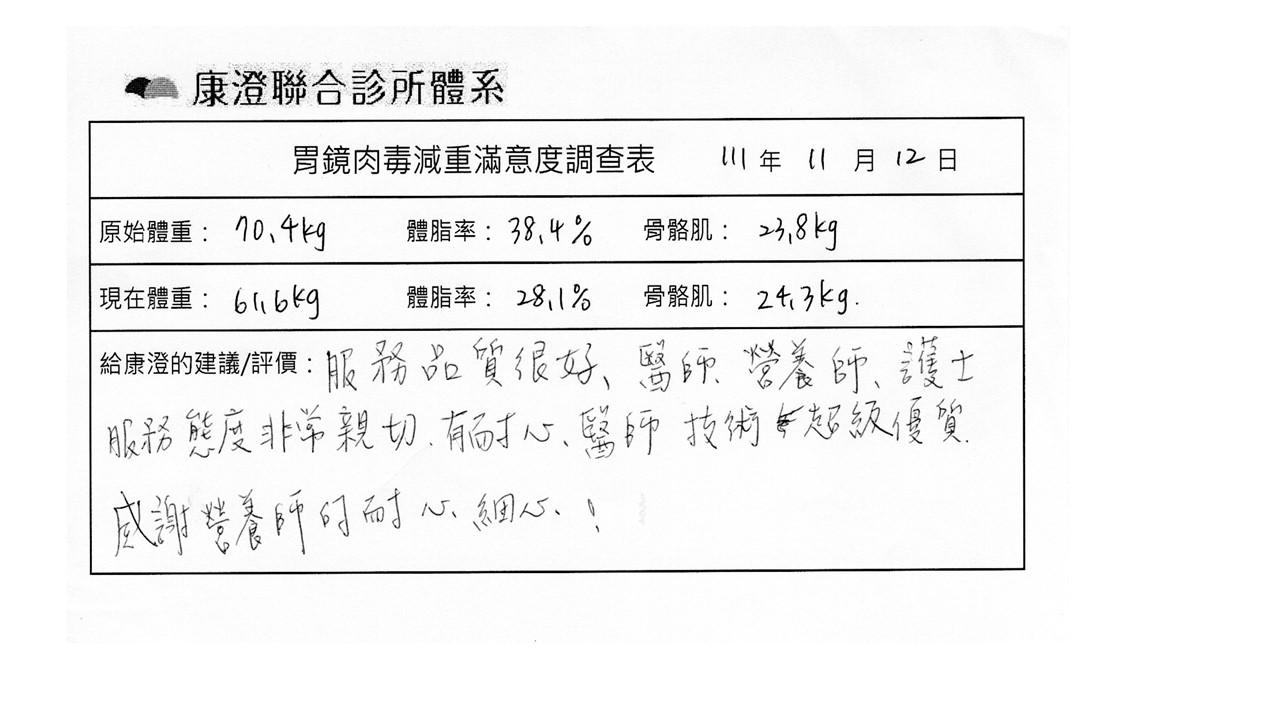 康澄聯合診所體系
胃鏡肉毒減重滿意度調查表 111 年 11 月 12 日
原始體重： 70.4kg 體脂率： 38.4% 骨骼肌： 23.8kg
現在體重： 61.6kg 體脂率： 28.1% 骨骼肌： 24.3kg.
給康澄的建議/評價：服務品質很好、醫師、營養師、護士
服務態度非常親切、有耐心、醫師技術超級優質.
感謝營養師的耐心、細心、!